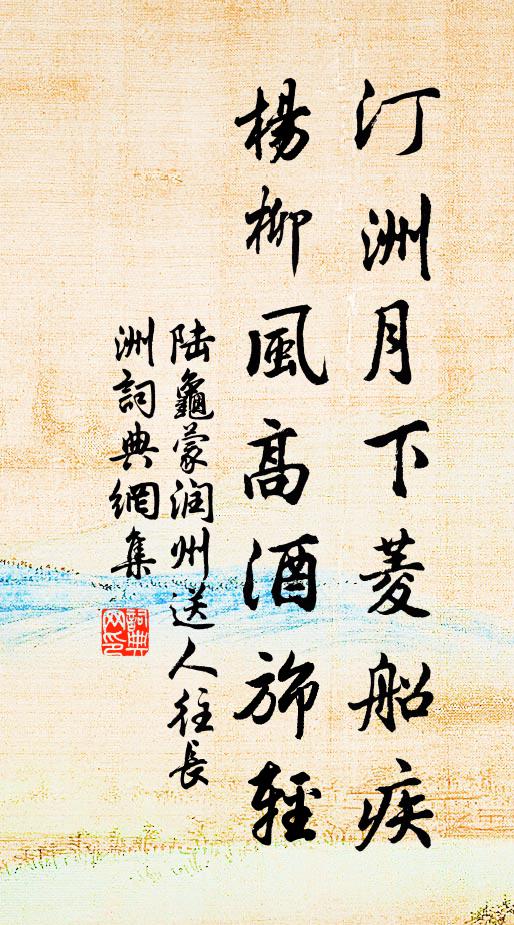 汀洲月下菱船疾
楊柳風高酒旆輕
陆龜蒙润州送人往長
洲詞典網集
詞典网印